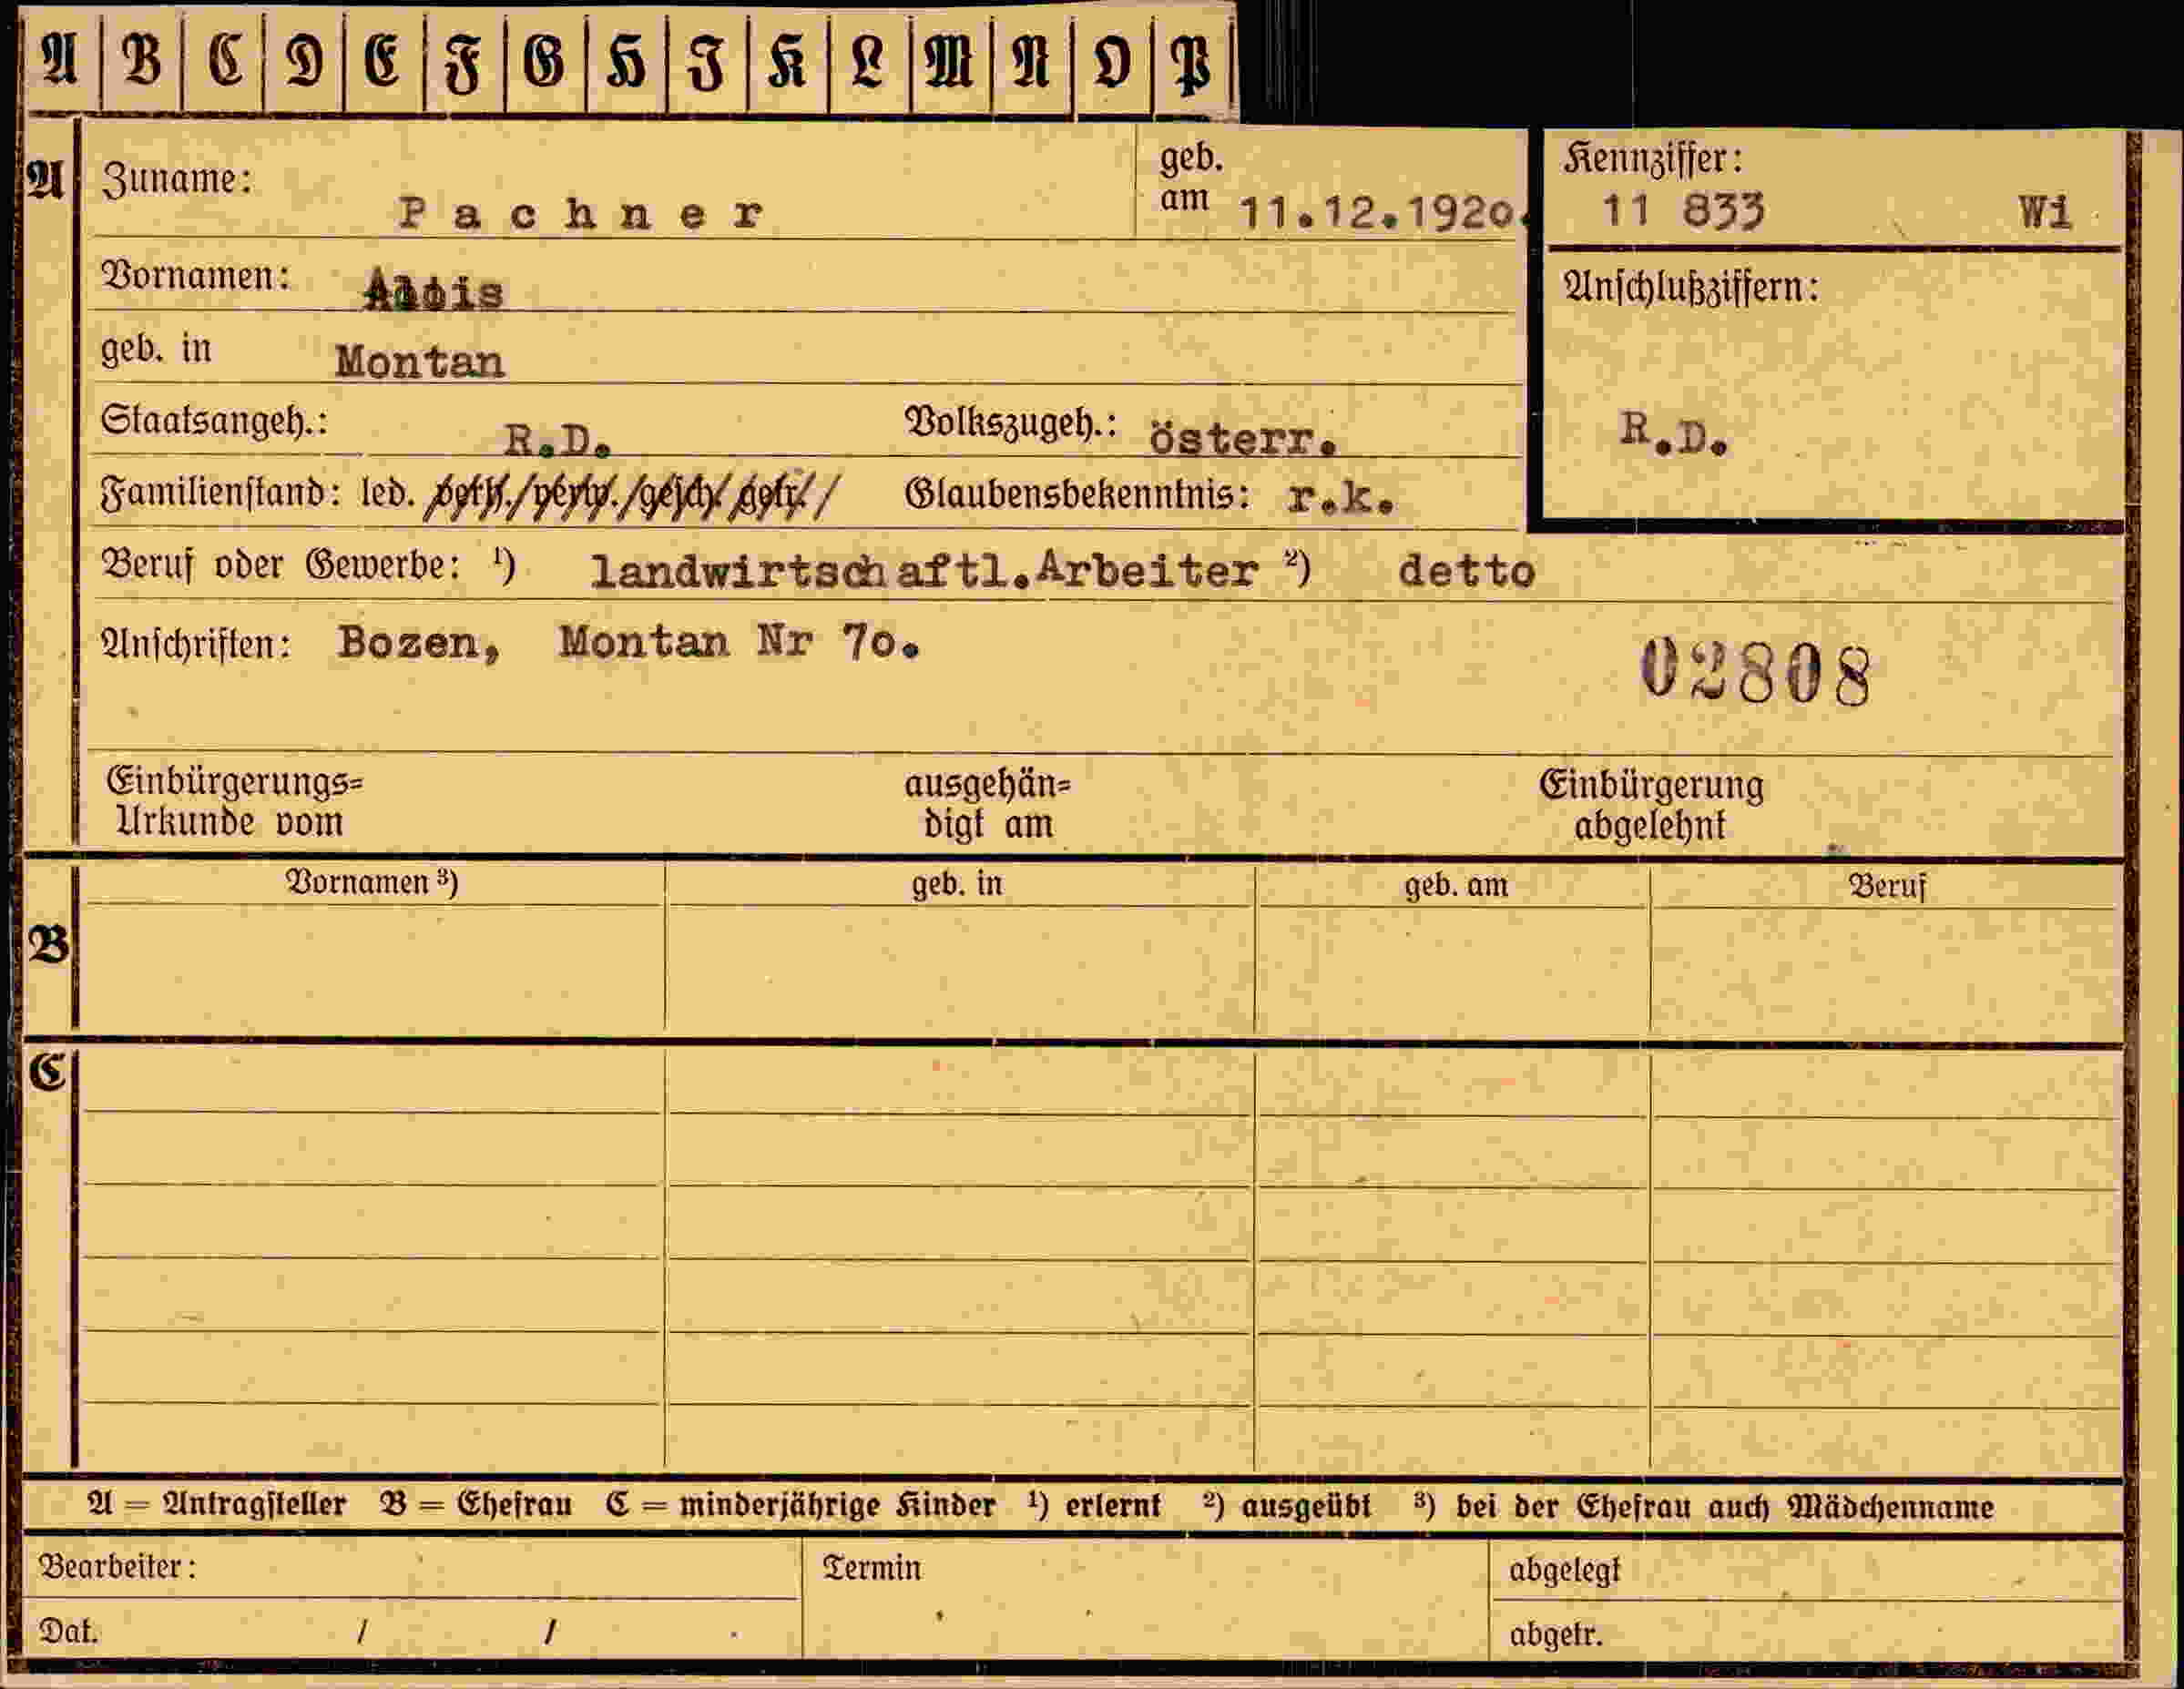 A B C D E F G H I K L M N O P
A Zuname: Pachner geb. am 11.12.1920. Kennziffer: 11 833 Wi
Vornamen: Alois Anschlußziffern:
geb. in Montan
Staatsangeh.: R.D. Volkszugeh.: österr. R.D.
Familienstand: led. / verh. / verw. / gesch. / getr. / Glaubensbekenntnis: r.k.
Beruf oder Gewerbe: ¹) landwirtschaftl.Arbeiter ²) detto
Anschriften: Bozen, Montan Nr 70.
02808
Einbürgerungs= ausgehän= Einbürgerung
Urkunde vom digt am abgelehnt
Vornamen ³) geb. in geb. am Beruf
B
C
A = Antragsteller B = Ehefrau C = minderjährige Kinder ¹) erlernt ²) ausgeübt ³) bei der Ehefrau auch Mädchenname
Bearbeiter: Termin abgelegt
Dat. / / abgetr.